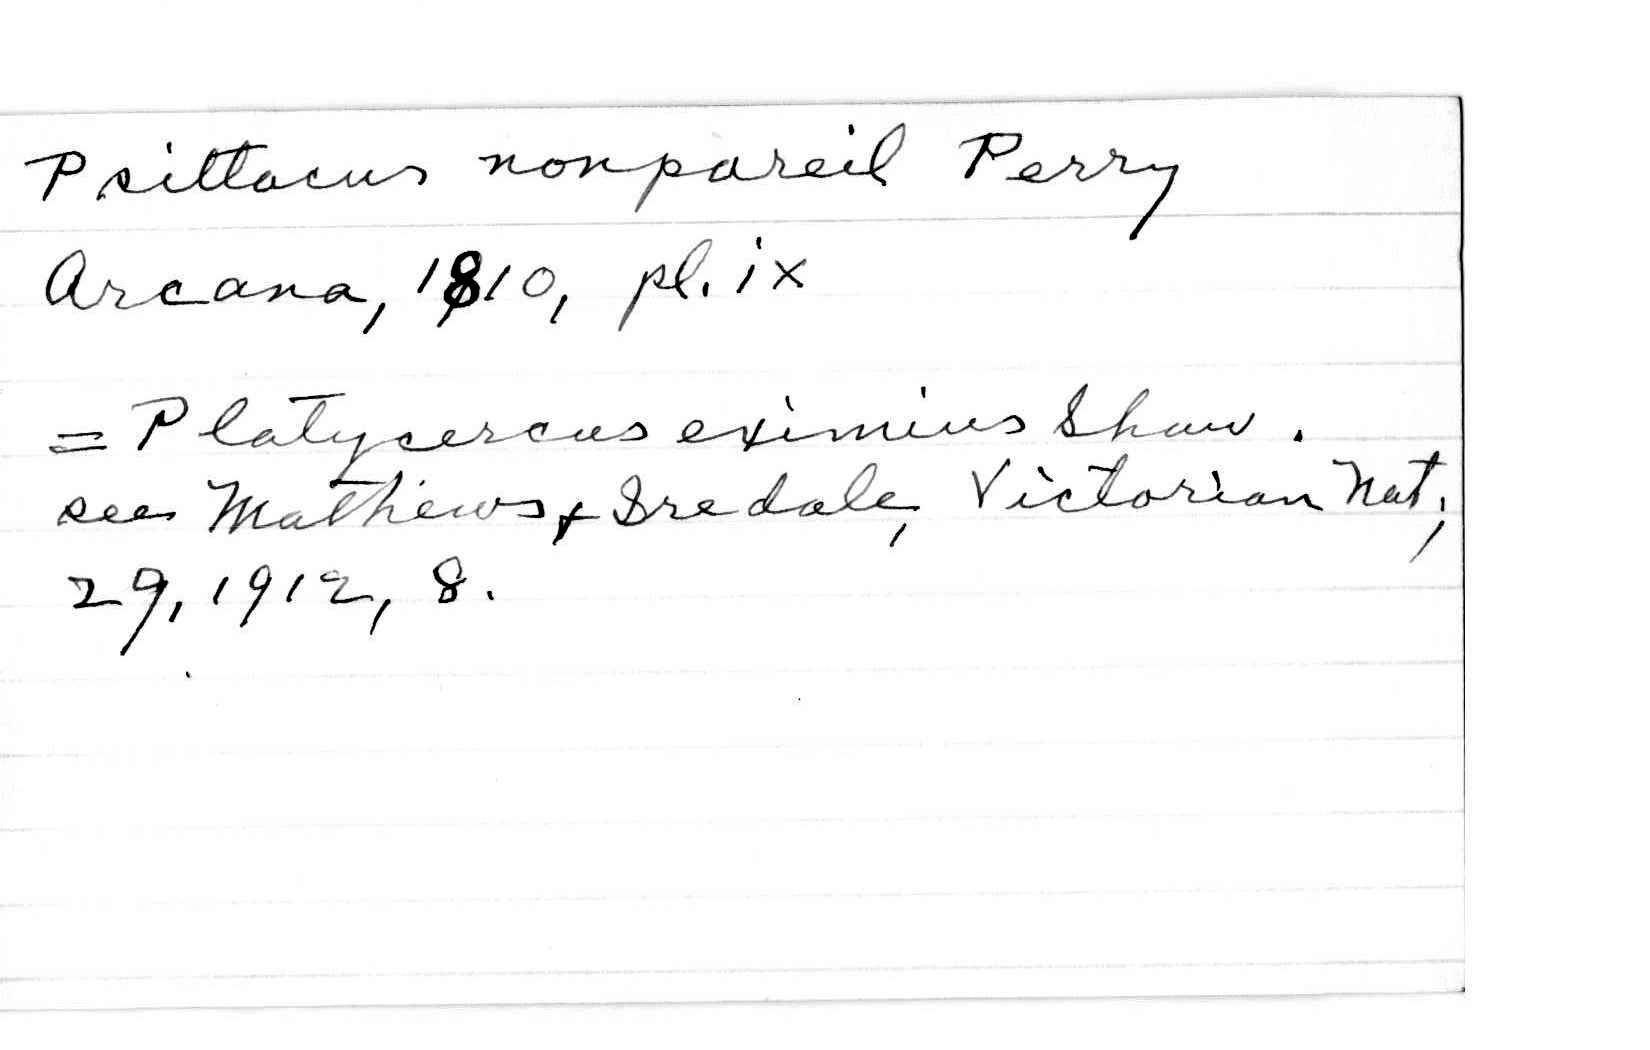 Psittacus nonpareil Perry
Arcana, 1810, pl. ix
= Platycercus eximius Shaw.
see Mathews & Iredale, Victorian Nat,
29, 1912, 8.